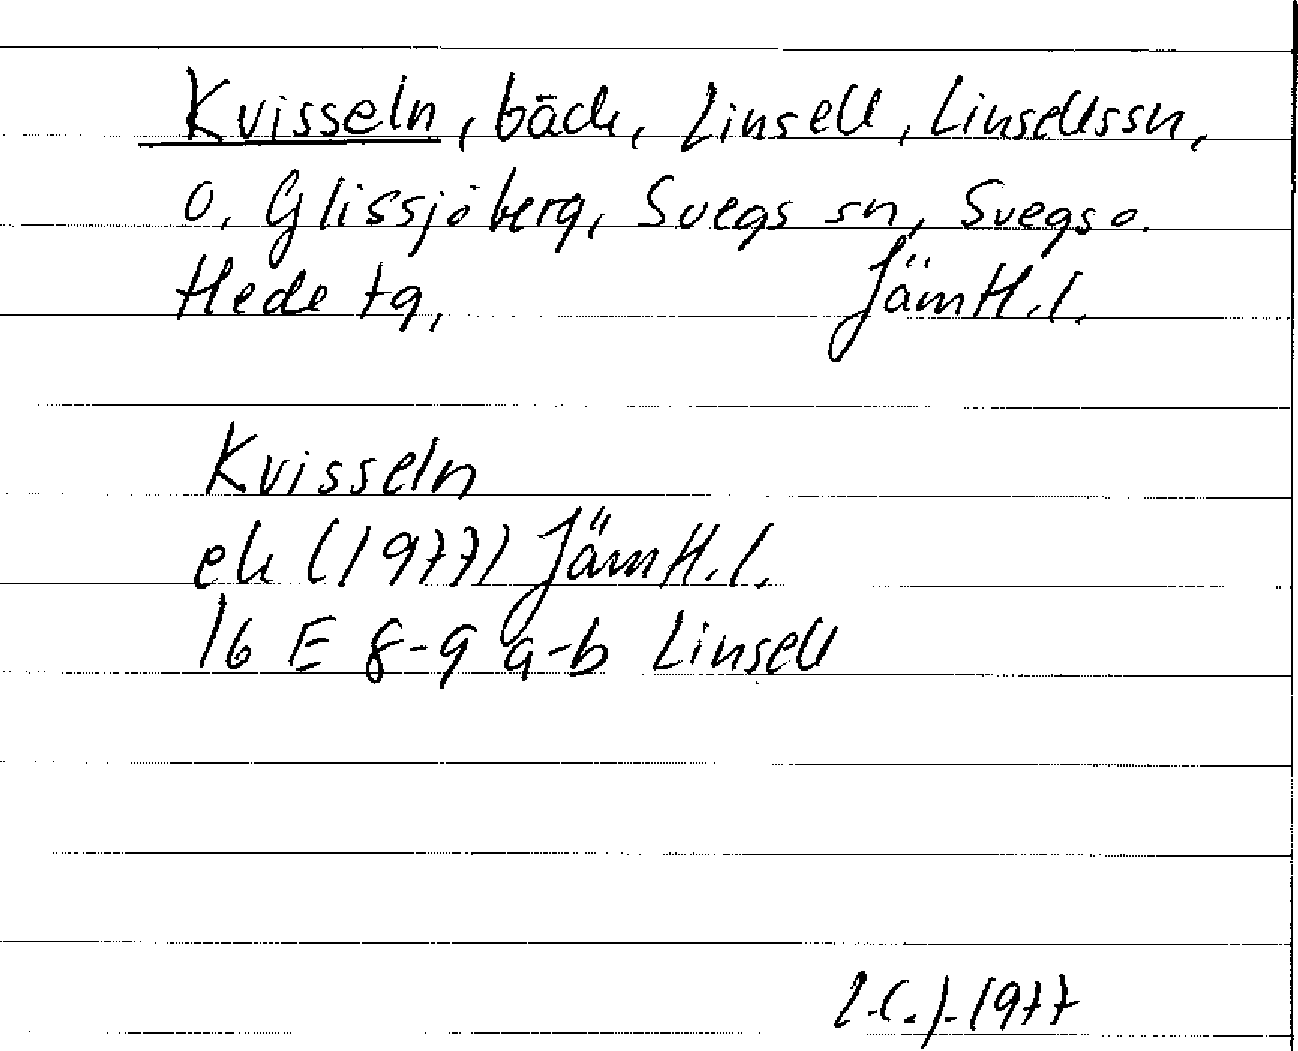 Kvisseln, bäck, Linsell, Linsells sn,
o. Glissjöberg, Svegs sn, Svegs o.
Hede tg, Jämtl. l.
Kvisseln
ek (1977) Jämtl. l.
16 E 8-9 a-b Linsell
1977